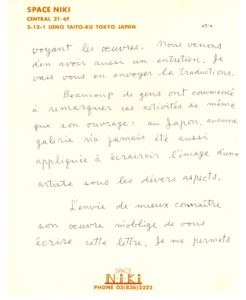 SPACE NIKI
CENTRAL 21-6F
2-12-1 UENO TAITO-KU TOKYO JAPAN
voyant les œuvres. Nous venons
d'en avoir aussi un entretien. Je
vais vous en envoyer la traductions.
Beaucoup de gens ont commencé
à remarquer ces activités de même
que son ouvrage: au Japon, aucune
galerie n'a jamais été aussi
appliquée à éclaircir l'image d'une
artiste sous les divers aspects.
L'envie de mieux connaître
son œuvre m'oblige de vous
écrire cette lettre. Je me permets
SPACE
NIKI
PHONE 03(836)2322